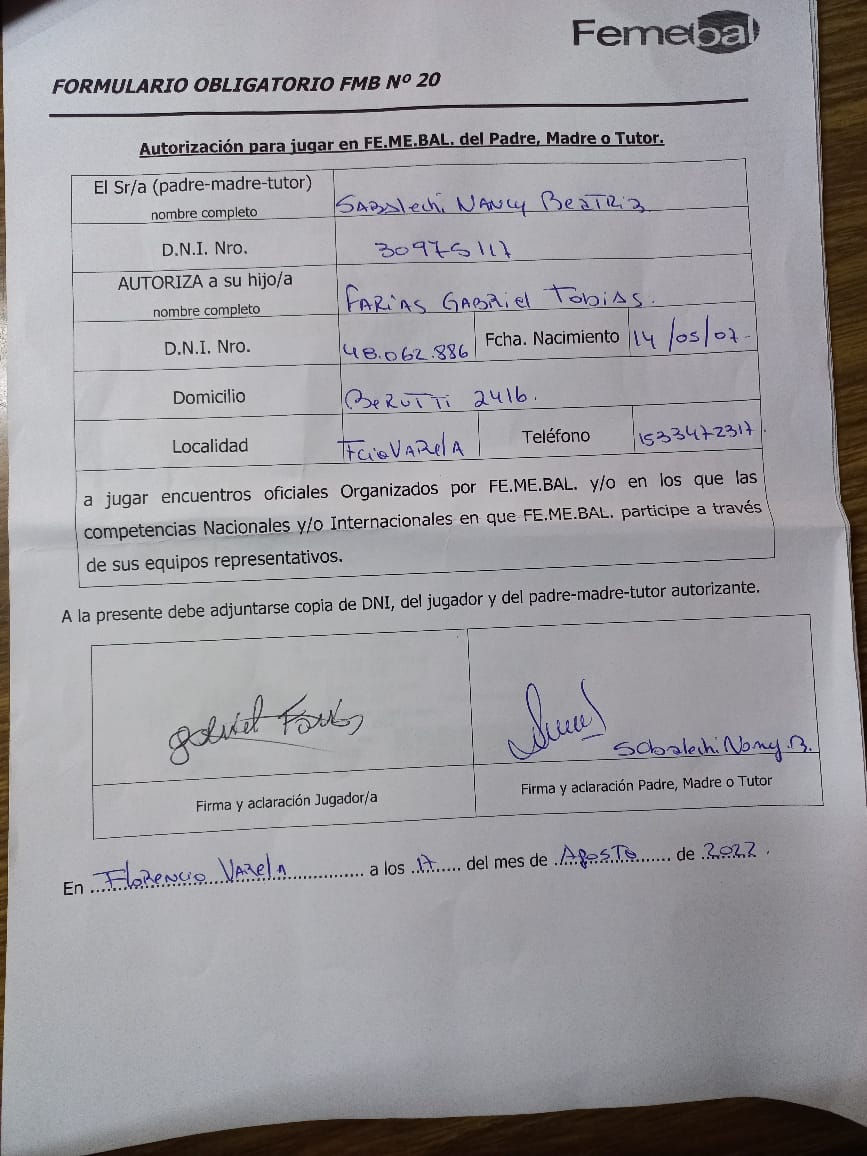 Femebal
FORMULARIO OBLIGATORIO FMB Nº 20
Autorización para jugar en FE.ME.BAL. del Padre, Madre o Tutor.
El Sr/a (padre-madre-tutor)
nombre completo
SABALechi NANCY BEATRIZ
D.N.I. Nro.
30975117
AUTORIZA a su hijo/a
nombre completo
FARIAS GABRIEL TOBIAS.
D.N.I. Nro.
48.062.886
Fcha. Nacimiento
14/05/07-
Domicilio
BERUTTI 2416.
Localidad
FcioVARelA
Teléfono
1533472317.
a jugar encuentros oficiales Organizados por FE.ME.BAL. y/o en los que las
competencias Nacionales y/o Internacionales en que FE.ME.BAL. participe a través
de sus equipos representativos.
A la presente debe adjuntarse copia de DNI, del jugador y del padre-madre-tutor autorizante.
gabriel Farias
Sabalechi Nancy.B.
Firma y aclaración Jugador/a
Firma y aclaración Padre, Madre o Tutor
En Florencio Varela a los 17 del mes de Agosto de 2022.